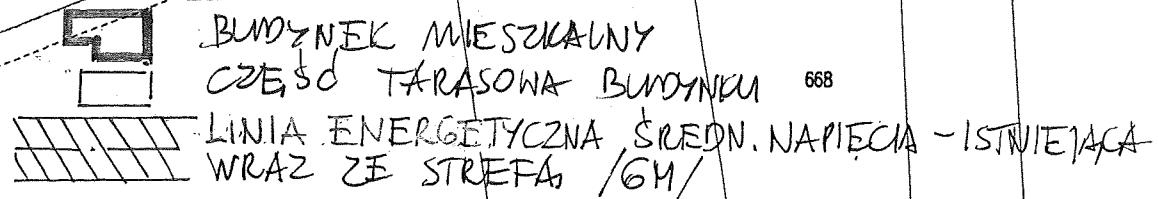 BUDYNEK MIESZKALNY
CZĘŚĆ TARASOWA BUDYNKU 668
LINIA ENERGETYCZNA ŚREDN. NAPIĘCIA - ISTNIEJĄCA
WRAZ ZE STREFĄ /6M/